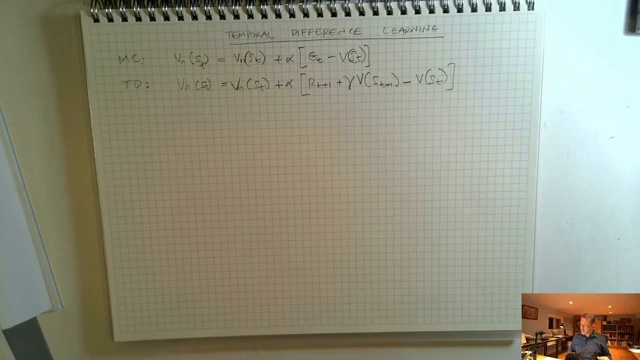 TEMPORAL DIFFERENCE LEARNING
MC: Vₙ(Sₜ) = Vₙ(Sₜ) + α [Gₜ − V(Sₜ)]
TD: Vₙ(Sₜ) = Vₙ(Sₜ) + α [Rₜ₊₁ + γV(Sₜ₊₁) − V(Sₜ)]